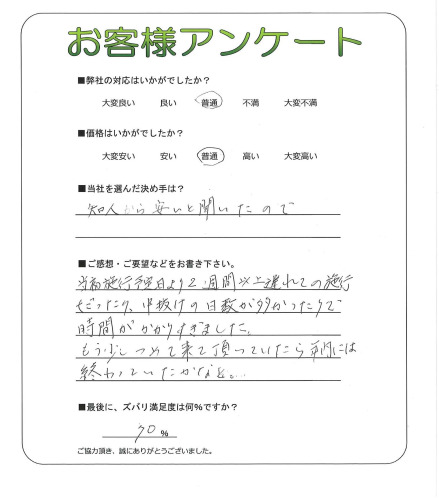 お客様アンケート
■弊社の対応はいかがでしたか？
大変良い 良い 普通 不満 大変不満
■価格はいかがでしたか？
大変安い 安い 普通 高い 大変高い
■当社を選んだ決め手は？
知人から安いと聞いたので
■ご感想・ご要望などをお書き下さい。
当初施行予定日より2週間以上遅れての施行
だったり、中抜けの日数が多かったりで
時間がかかりすぎました。
もう少しつめて来て頂っていたら 内には
終わっていたかなと。
■最後に、ズバリ満足度は何%ですか？
70 %
ご協力頂き、誠にありがとうございました。